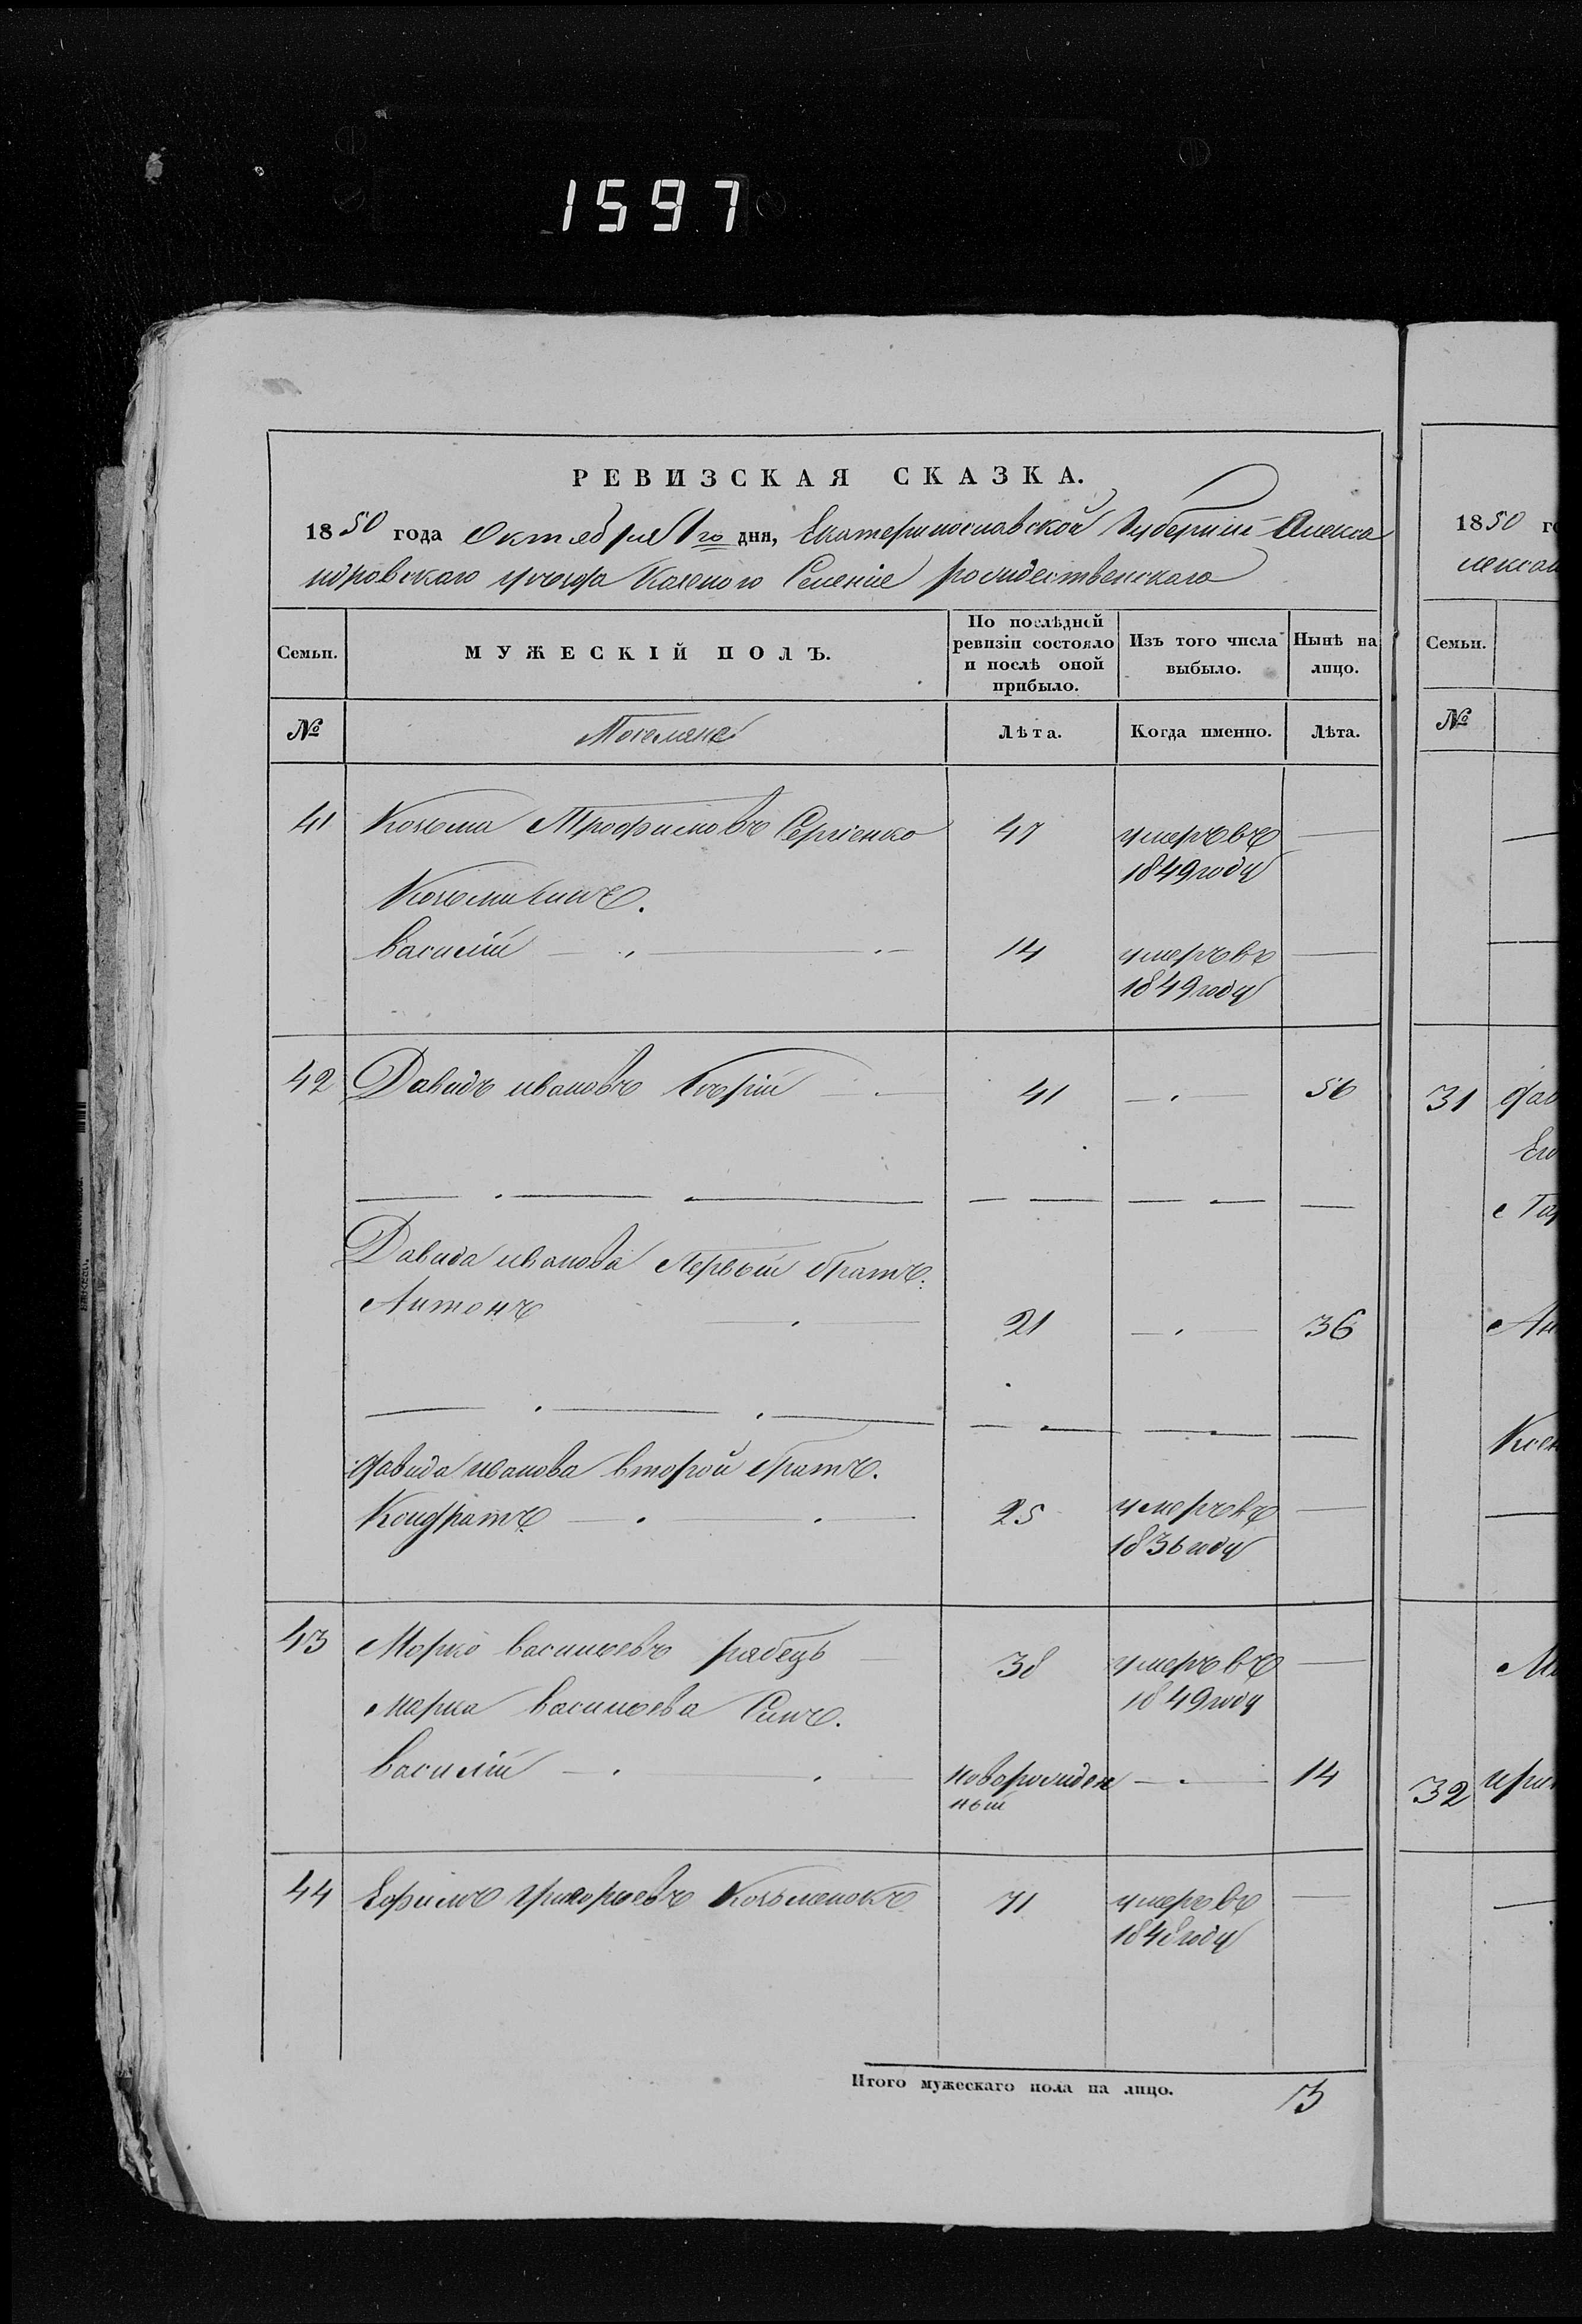 1597
РЕВИЗСКАЯ СКАЗКА.
1850 года Октября 1го дня, Екатеринославской Губернии Алекса
ндровскаго уѣзда Казеного Селения рождественскаго
Семьи.
МУЖЕСКІЙ ПОЛЪ.
По послѣдней ревизіи состояло и послѣ оной прибыло.
Изъ того числа выбыло.
Нынѣ на лицо.
№
Поселяне
Лѣта.
Когда именно.
Лѣта.
41 Козьма Трофимовъ Сергіенко 47 умеръ въ
1849 году
Козьми сынъ.
Василій 14 умеръ въ
1849 году
42 Давидъ ивановъ 41 56
Давида иванова Первый братъ.
Антонъ 21 36
Давида иванова второй братъ.
Кондратъ 25 умеръ въ
1836 году
43 Марко васильевъ рябецъ 38 умеръ въ
1849 году
Марка васильева Сынъ.
Василій новорожден 14
ный
44 Ефимъ Григорьевъ Козьменокъ 71 умеръ въ
1848 году
Итого мужескаго пола на лицо. 3
1850 го
Семьи.
№
31
32